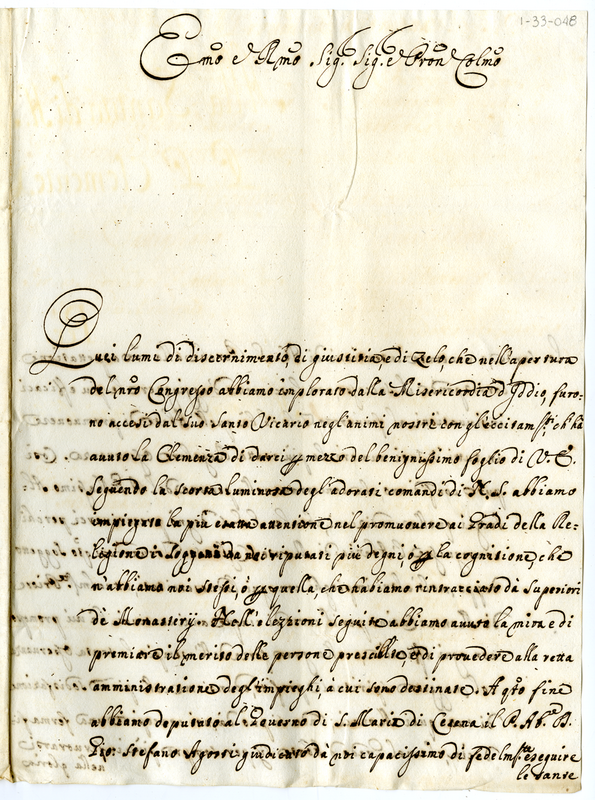 1-33-048
Emo e Rmo Sig.r Sig.r e Pron Colmo
Quei lumi di discernimento, di giustitia, e di Zelo, che nell'apertura
del nro Congresso abbiamo implorato dalla Misericordia d'Iddio, furo-
no accesi dal Suo Santo Vicario negl'animi nostri con gl'eccitam.ti ch'ha
avuto la Clemenza di darci p mezzo del benignissimo foglio di V. E.
Seguendo la scorta luminosa degl'adorati comandi di N. S. abbiamo
impiegata la più esatta attentione nel promuovere ai Gradi della Re-
ligione i Soggetti da noi riputati più degni, ò p la cognitione, che
n'abbiamo noi stessi, ò p quella, che habbiamo rintracciato da Superiori
de Monasterij. Nell'elezzioni seguite abbiamo avuto la mira e di
premiare il merito delle persone prescielte, e di provedere alla retta
amministratione degl'impieghi, à cui sono destinate. A qto fine
abbiamo deputato al Governo di S. Maria di Cesena il P. Ab.e D.
Gio: Stefano Agosti giudicato da noi capacissimo di fedelm.te eseguire
le sante